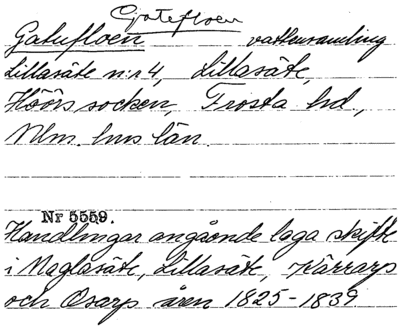 Gatefloen
Gatufloen vattensamling
Lillasäte n:r 4, Lillasäte,
Höörs socken, Frosta hd,
Mlm. hus län.
Nr 5559.
Handlingar angående laga skifte
i Maglasäte, Lillasäte, Kärrarp
och Osarp åren 1825-1839